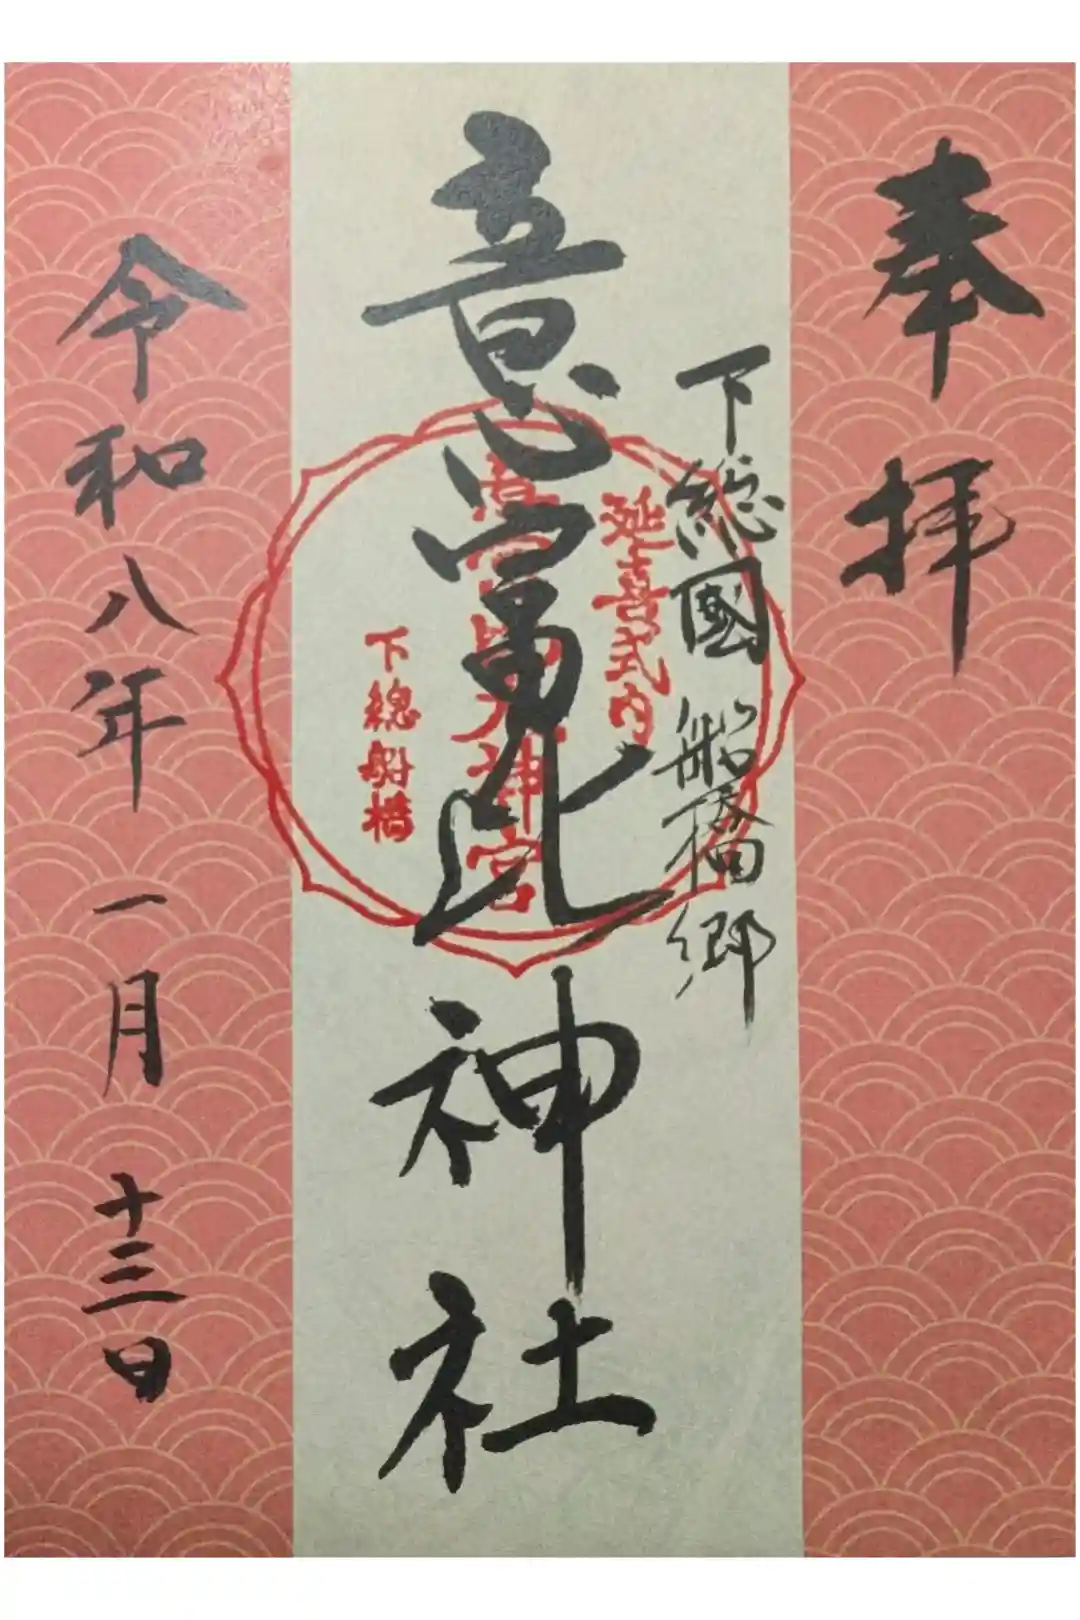 奉拝
下総國船橋郷
意富比神社
延喜式内
意富比大神宮
下總船橋
令和八年一月十三日